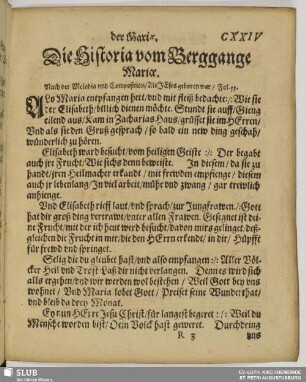 der Mariæ. CXXIV
Die Historia vom Berggange
Mariæ.
Nach der Melodia vnd Composition / Als JEsus geboren war / Fol. 55.
ALso Maria entpfangen hett / vnd mit fleiß bedachte :/: Wie sie
der Elisabeth / billich dienen möchte. Stundt sie auff / Gieng
eilend aus / Kam in Zacharias Haus / grüsset sie im HErren /
Vnd als sie den Gruß gesprach / so bald ein new ding geschah /
wünderlich zu hören.
Elisabeth ward besücht / vom heiligen Geiste :/: Der begabt
auch jre Frucht / Wie sichs denn beweiste. In diesem / da sie zu
handt / jren Heilmacher erkandt / mit frewden empfienge / diesem
auch jr lebenlang / In viel arbeit / mühe vnd zwang / gar trewlich
anhienge.
Vnd Elisabeth rieff laut / vnd sprach / zur Jungfrawen / Gott
hat dir groß ding vertrawt / vnter allen Frawen. Gesegnet ist dei-
ne Frucht / mit der ich heut werd besucht / davon mirs gelinget / deß-
gleichen die Frucht in mir / die den HErrn erkendt / in dir / Hüpfft
für frewd vnd springet.
Selig die du gleubet hast / vnd also empfangen :/: Aller Völ-
cker Heil vnd Trost / Laß dir nicht verlangen. Denn es wird sich
alls ergehen / vnd wir werden wol bestehen / Weil Gott bey vns
wohnet / Vnd Maria lobet Gott / Preiset seine Wunderthat /
vnd bleib da drey Monat.
Ey nun HErre Jesu Christ / für langest begeret :/: Weil du
Mensch worden bist / Dein Volck hast geweret. Durchdring
R 3 vns
SLUB
Wir führen Wissen.
EV.-LUTH. KIRCHGEMEINDE
ST. PETRI AUGUSTUSBURG